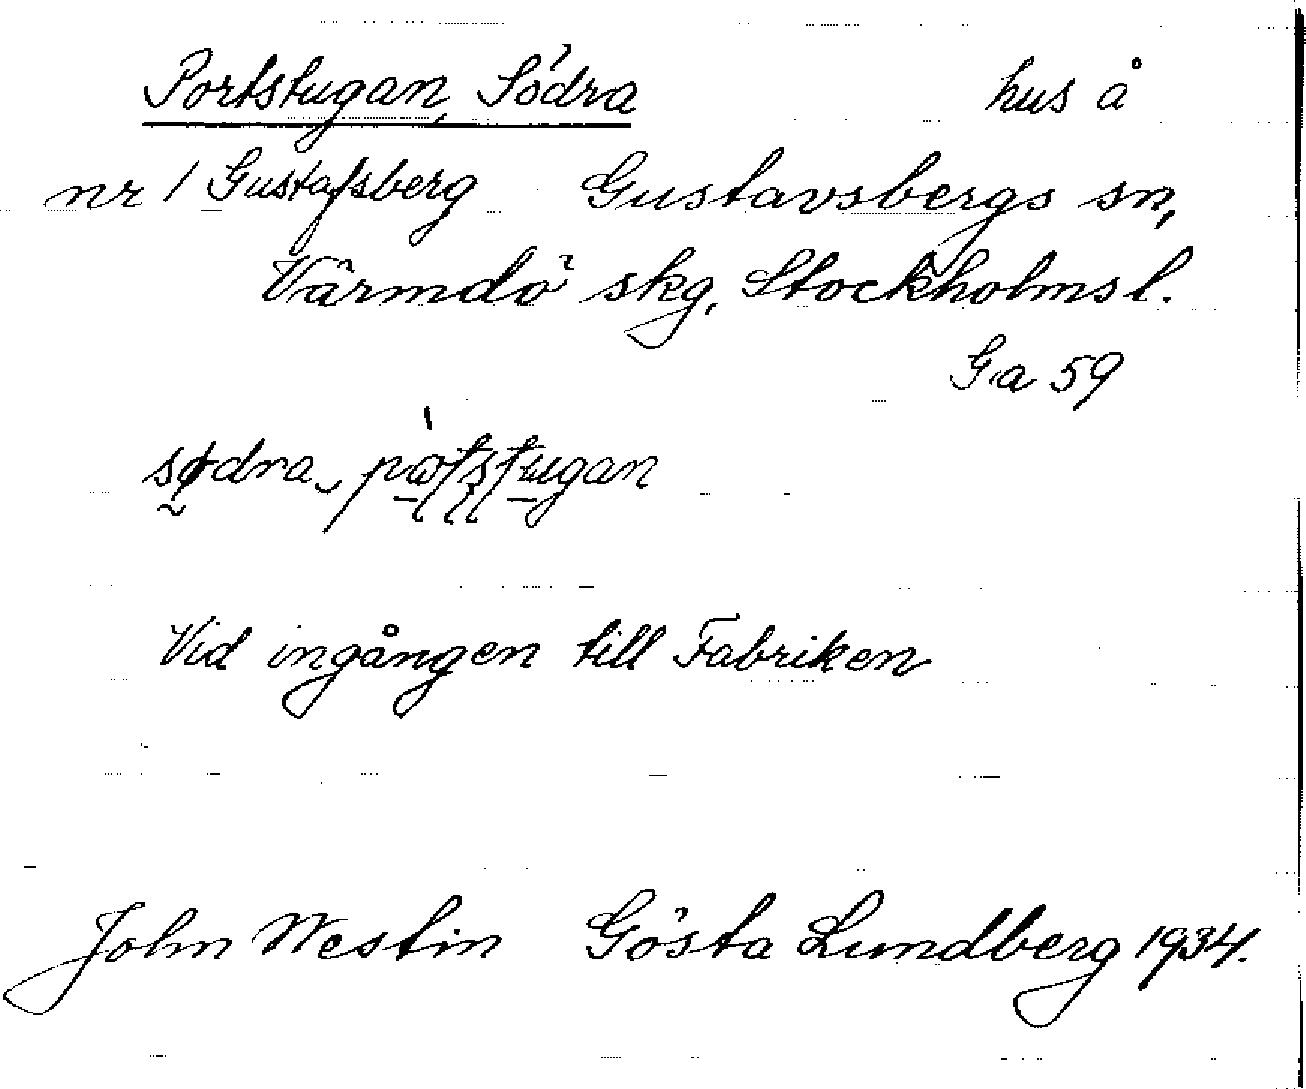 Portstugan, Södra hus å
nr 1 Gustafsberg Gustavsbergs sn,
Värmdö skg, Stockholms l.
Ga 59
sødra pòtstugan
Vid ingången till Fabriken
John Westin Gösta Lundberg 1934.